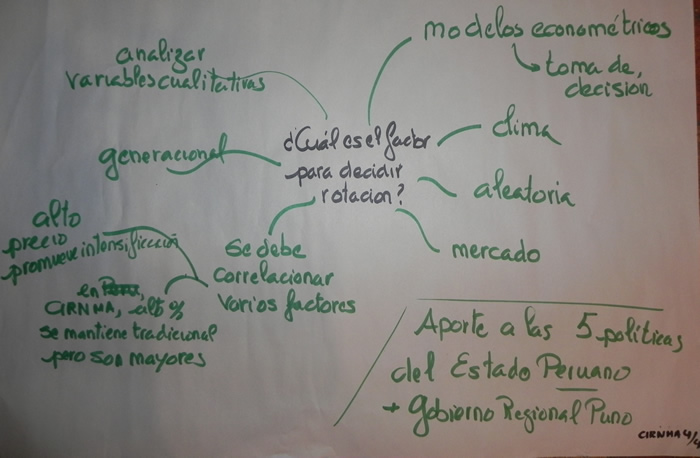 analizar
variables cualitativas
modelos econométricos
toma de
decisión
¿Cuál es el factor
para decidir
rotación?
clima
generacional
aleatoria
mercado
alto
precio
promueve intensificación
se debe
correlacionar
varios factores
en
CIRNMA, alto %
se mantiene tradicional
pero son mayores
Aporte a las 5 políticas
del Estado Peruano
+ Gobierno Regional Puno
CIRNMA 4/4